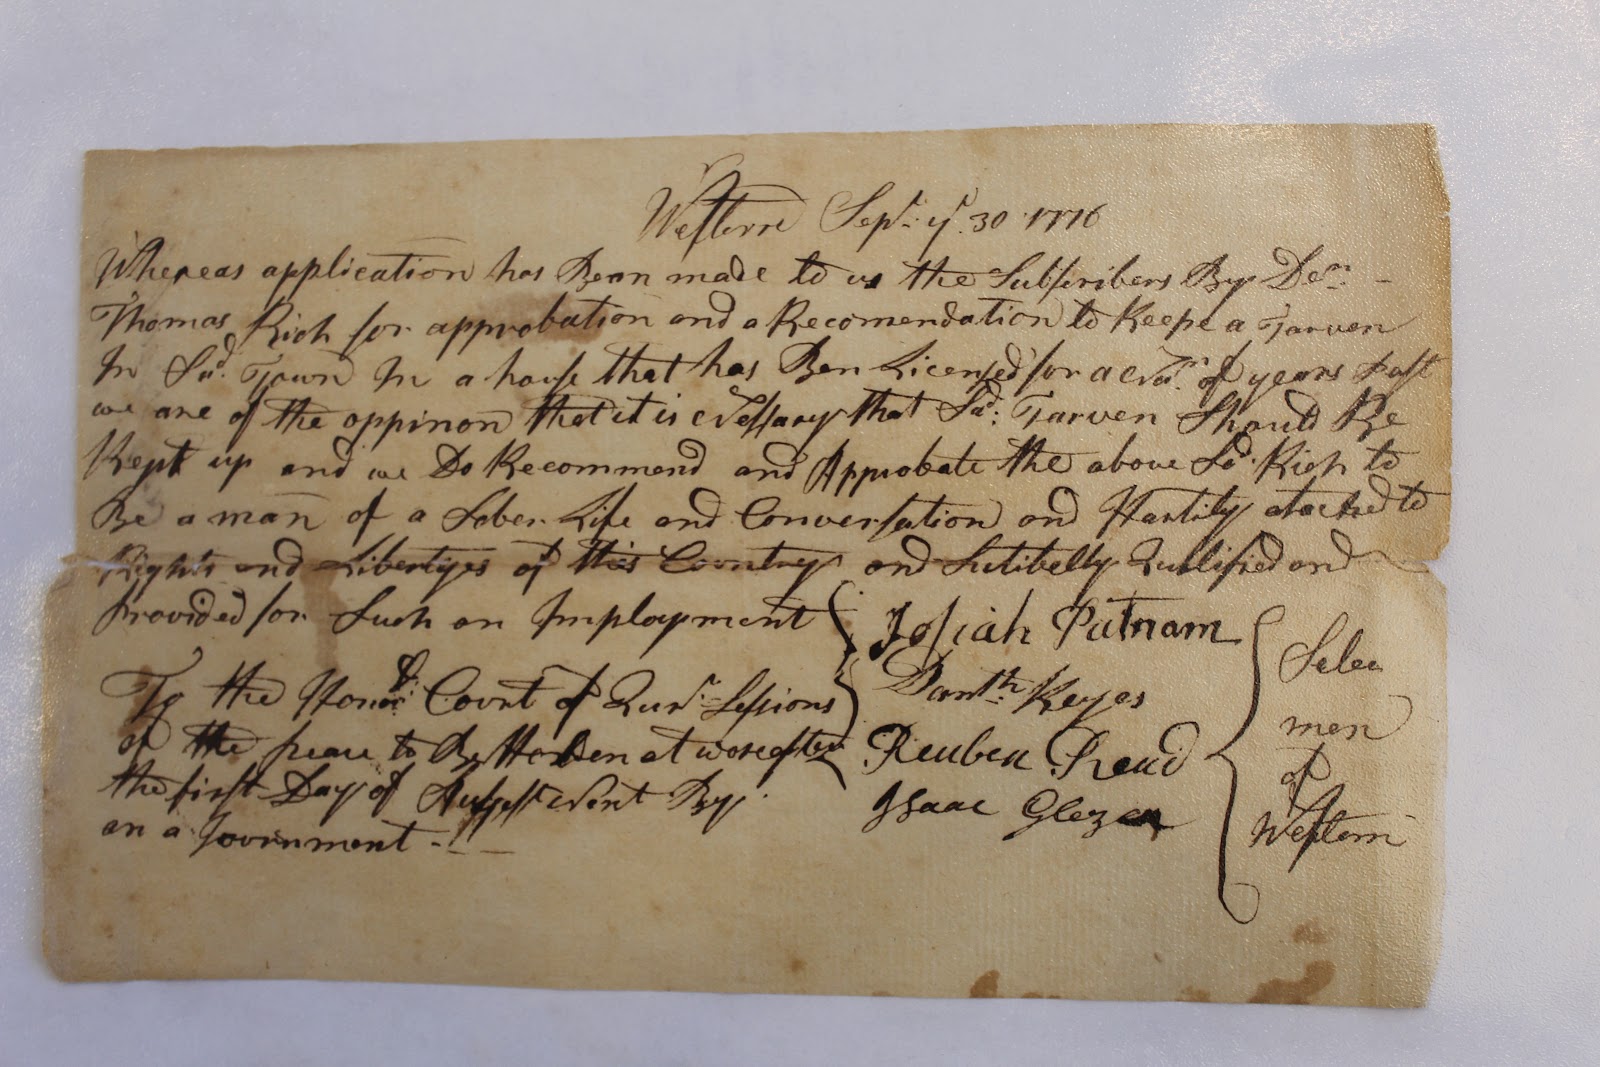 Westerne Sepr. ye. 30 1776
Whereas application has Bean made to us the Subscribers By Den.
Thomas Rich for approbation and a Recomendation to Keepe a Tarven
In Sd. Town In a house that has Ben Licensed for a of years past
we are of the oppinon that it is Nessary that Sd. Tarven Should Be
Kept up and we Do Recommend and Approbate the above Sd. Rich to
Be a man of a Sober Life and Conversation and Hartily atached to
Rights and Libertyes of this Country and Sutibelly Qulified and
provided for Such an Imployment
Josiah Putnam
Danth. Keyes
Reuben Read
Isaac Glezen
Selec
men
of
Western
To the Honor. Court of Qur. Sessions
of the peace to Be Holden at worcester
the first Day of Next By
an a Government